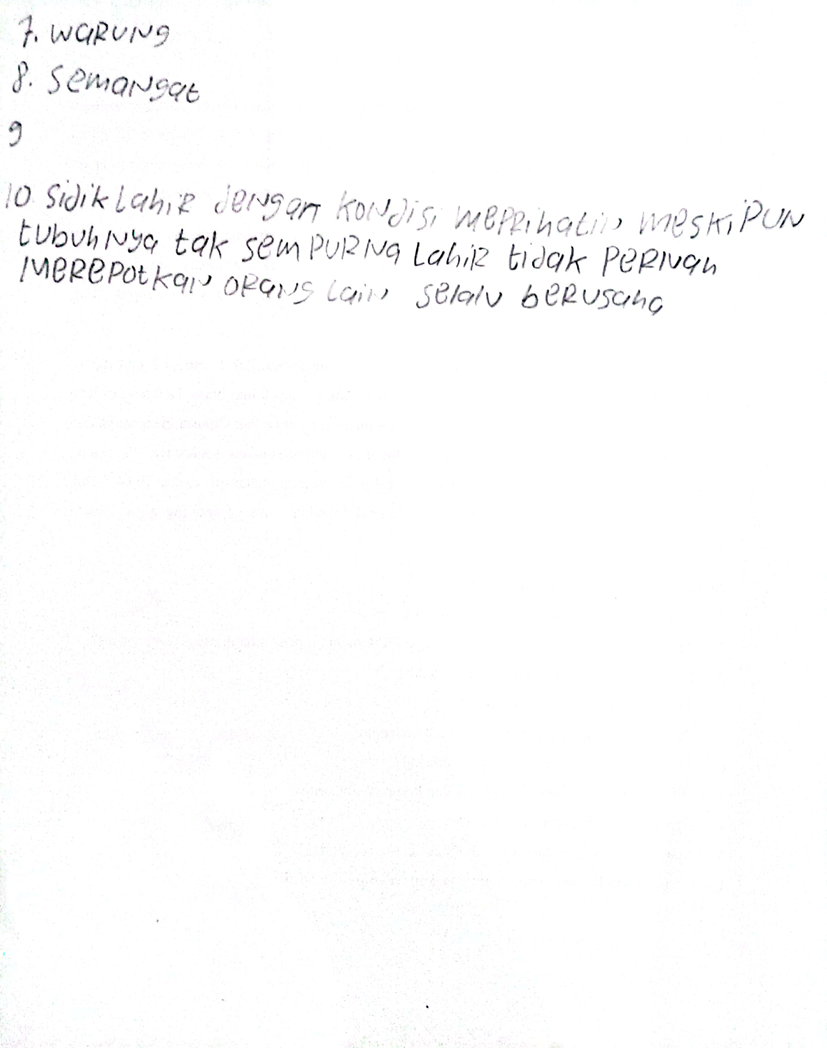 7. WARUNG
8. Semangat
9
10 Sidik Lahir dengan kondisi meprihatin meskipun
tubuhnya tak sempurna Lahir tidak pernah
merepotkan orang lain selalu berusaha